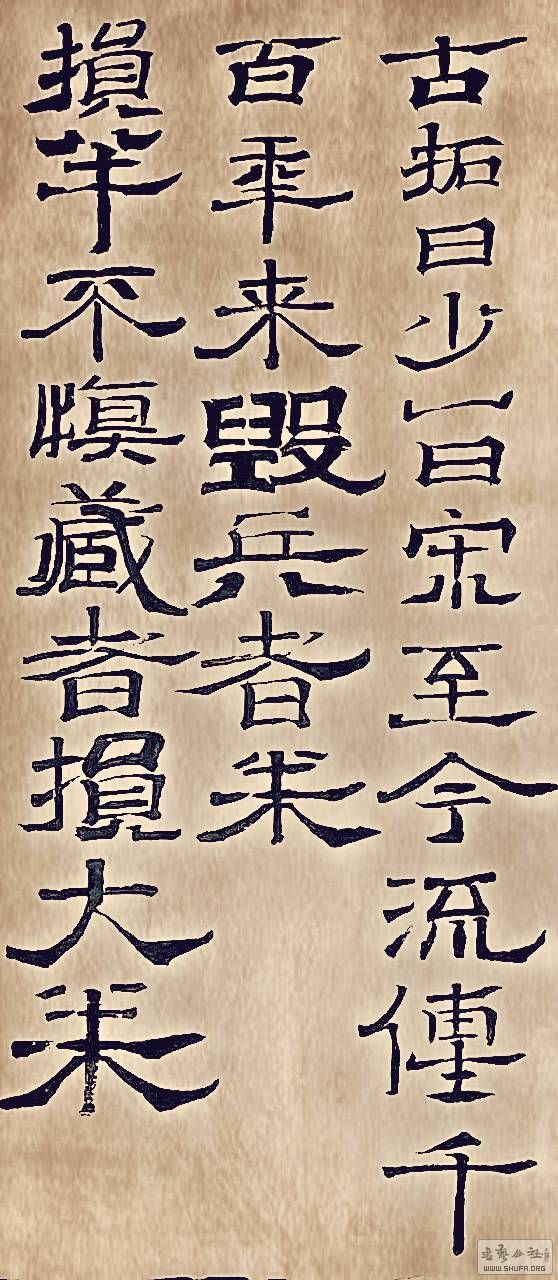 古拓日少一日宋至今流傳千
百年来毀兵者
損半不慎藏者損大
書藝公社
WWW.SHUFA.ORG